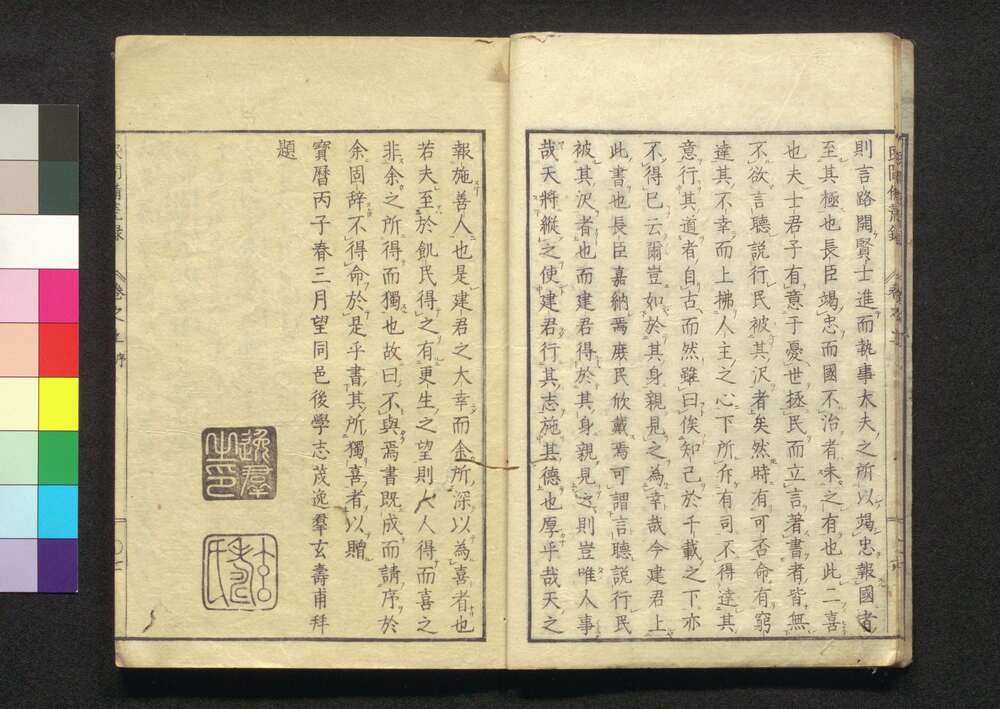 則言路開賢士進而執事大夫之所以竭忠報國者
至其極也長臣竭忠而國不治者未之有也此二喜
也夫士君子有意于憂世拯民而立言著書者皆無
不欲言聽説行民被其沢者矣然時有可否命有窮
達其不幸而上拂人主之心下所斥有司不得達其
意行其道者自古而然雖曰俟知己於千載之下亦
不得已云爾豈如於其身親見之為幸哉今建君上
此書也長臣嘉納焉庶民欣戴焉可謂言聽説行民
被其沢者也而建君得於其身親見之則豈唯人事
哉天将縦之使建君行其志施其德也厚乎哉天之
報施善人也是建君之大幸而余所深以為喜者也
若夫至於飢民得之有更生之望則人人得而喜之
非余之所得而獨也故曰不與焉書既成而請序於
余固辞不得命於是乎書其所獨喜者以贈
寶暦丙子春三月望同邑後學志茂逸羣玄壽甫拜
題
逸羣
之印
玄壽
氏